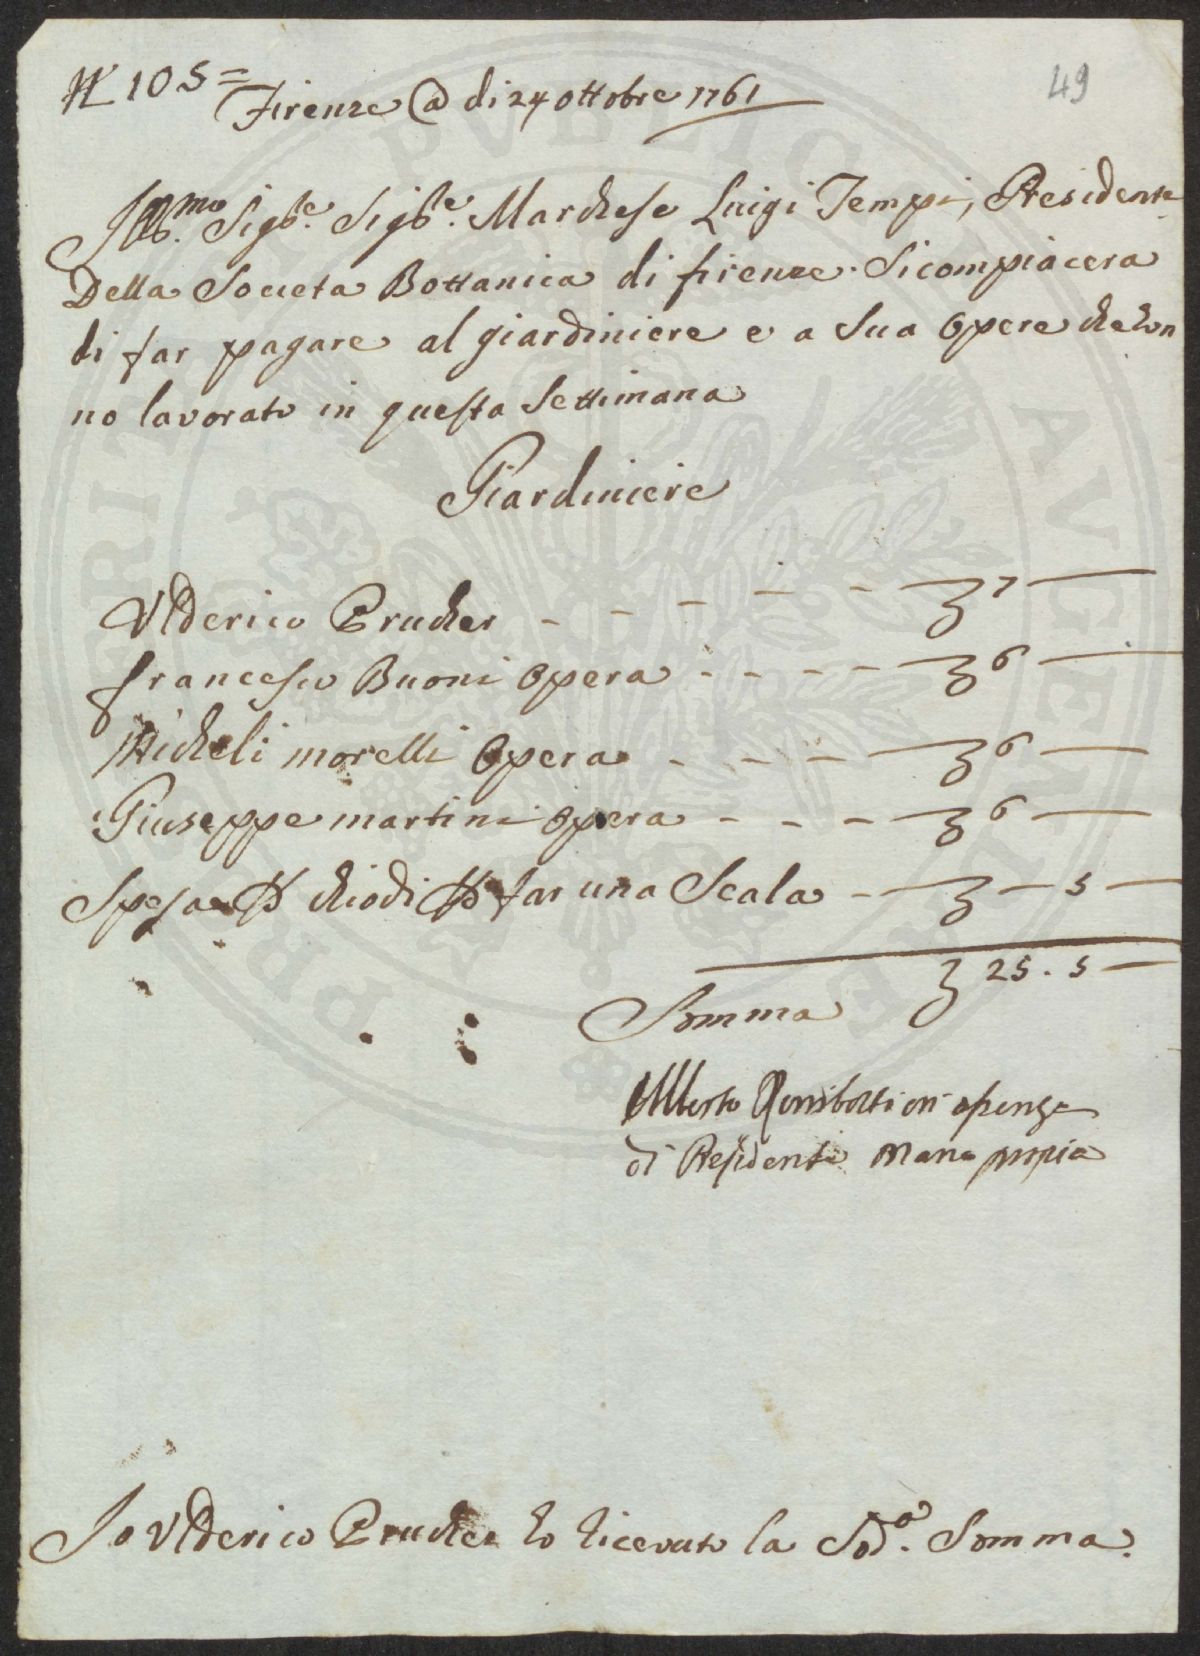 N 105= 49
Firenze @ di 24 ottobre 1761
Ill.mo Sig.re Sig.re Marchese Luigi Tempi, Presidente
Della Societa Bottanica di firenze. Si compiacera
di far pagare al giardiniere e a Sua Opere che hon
no lavorato in questa Settimana
Giardiniere
Ulderico Prucher - - - - - 7 —
francesco Buoni opera - - - - 6 —
Micheli morelli Opera - - - 6 —
Giuseppe martini opera - - - 6 —
Spesa P chiodi P far una Scala - — 5 —
25 . 5 —
Somma
Alberto Rimbotti in
di Presidente Mano propia
Io Ulderico Prucher ho ricevuto la Sod.a Somma.